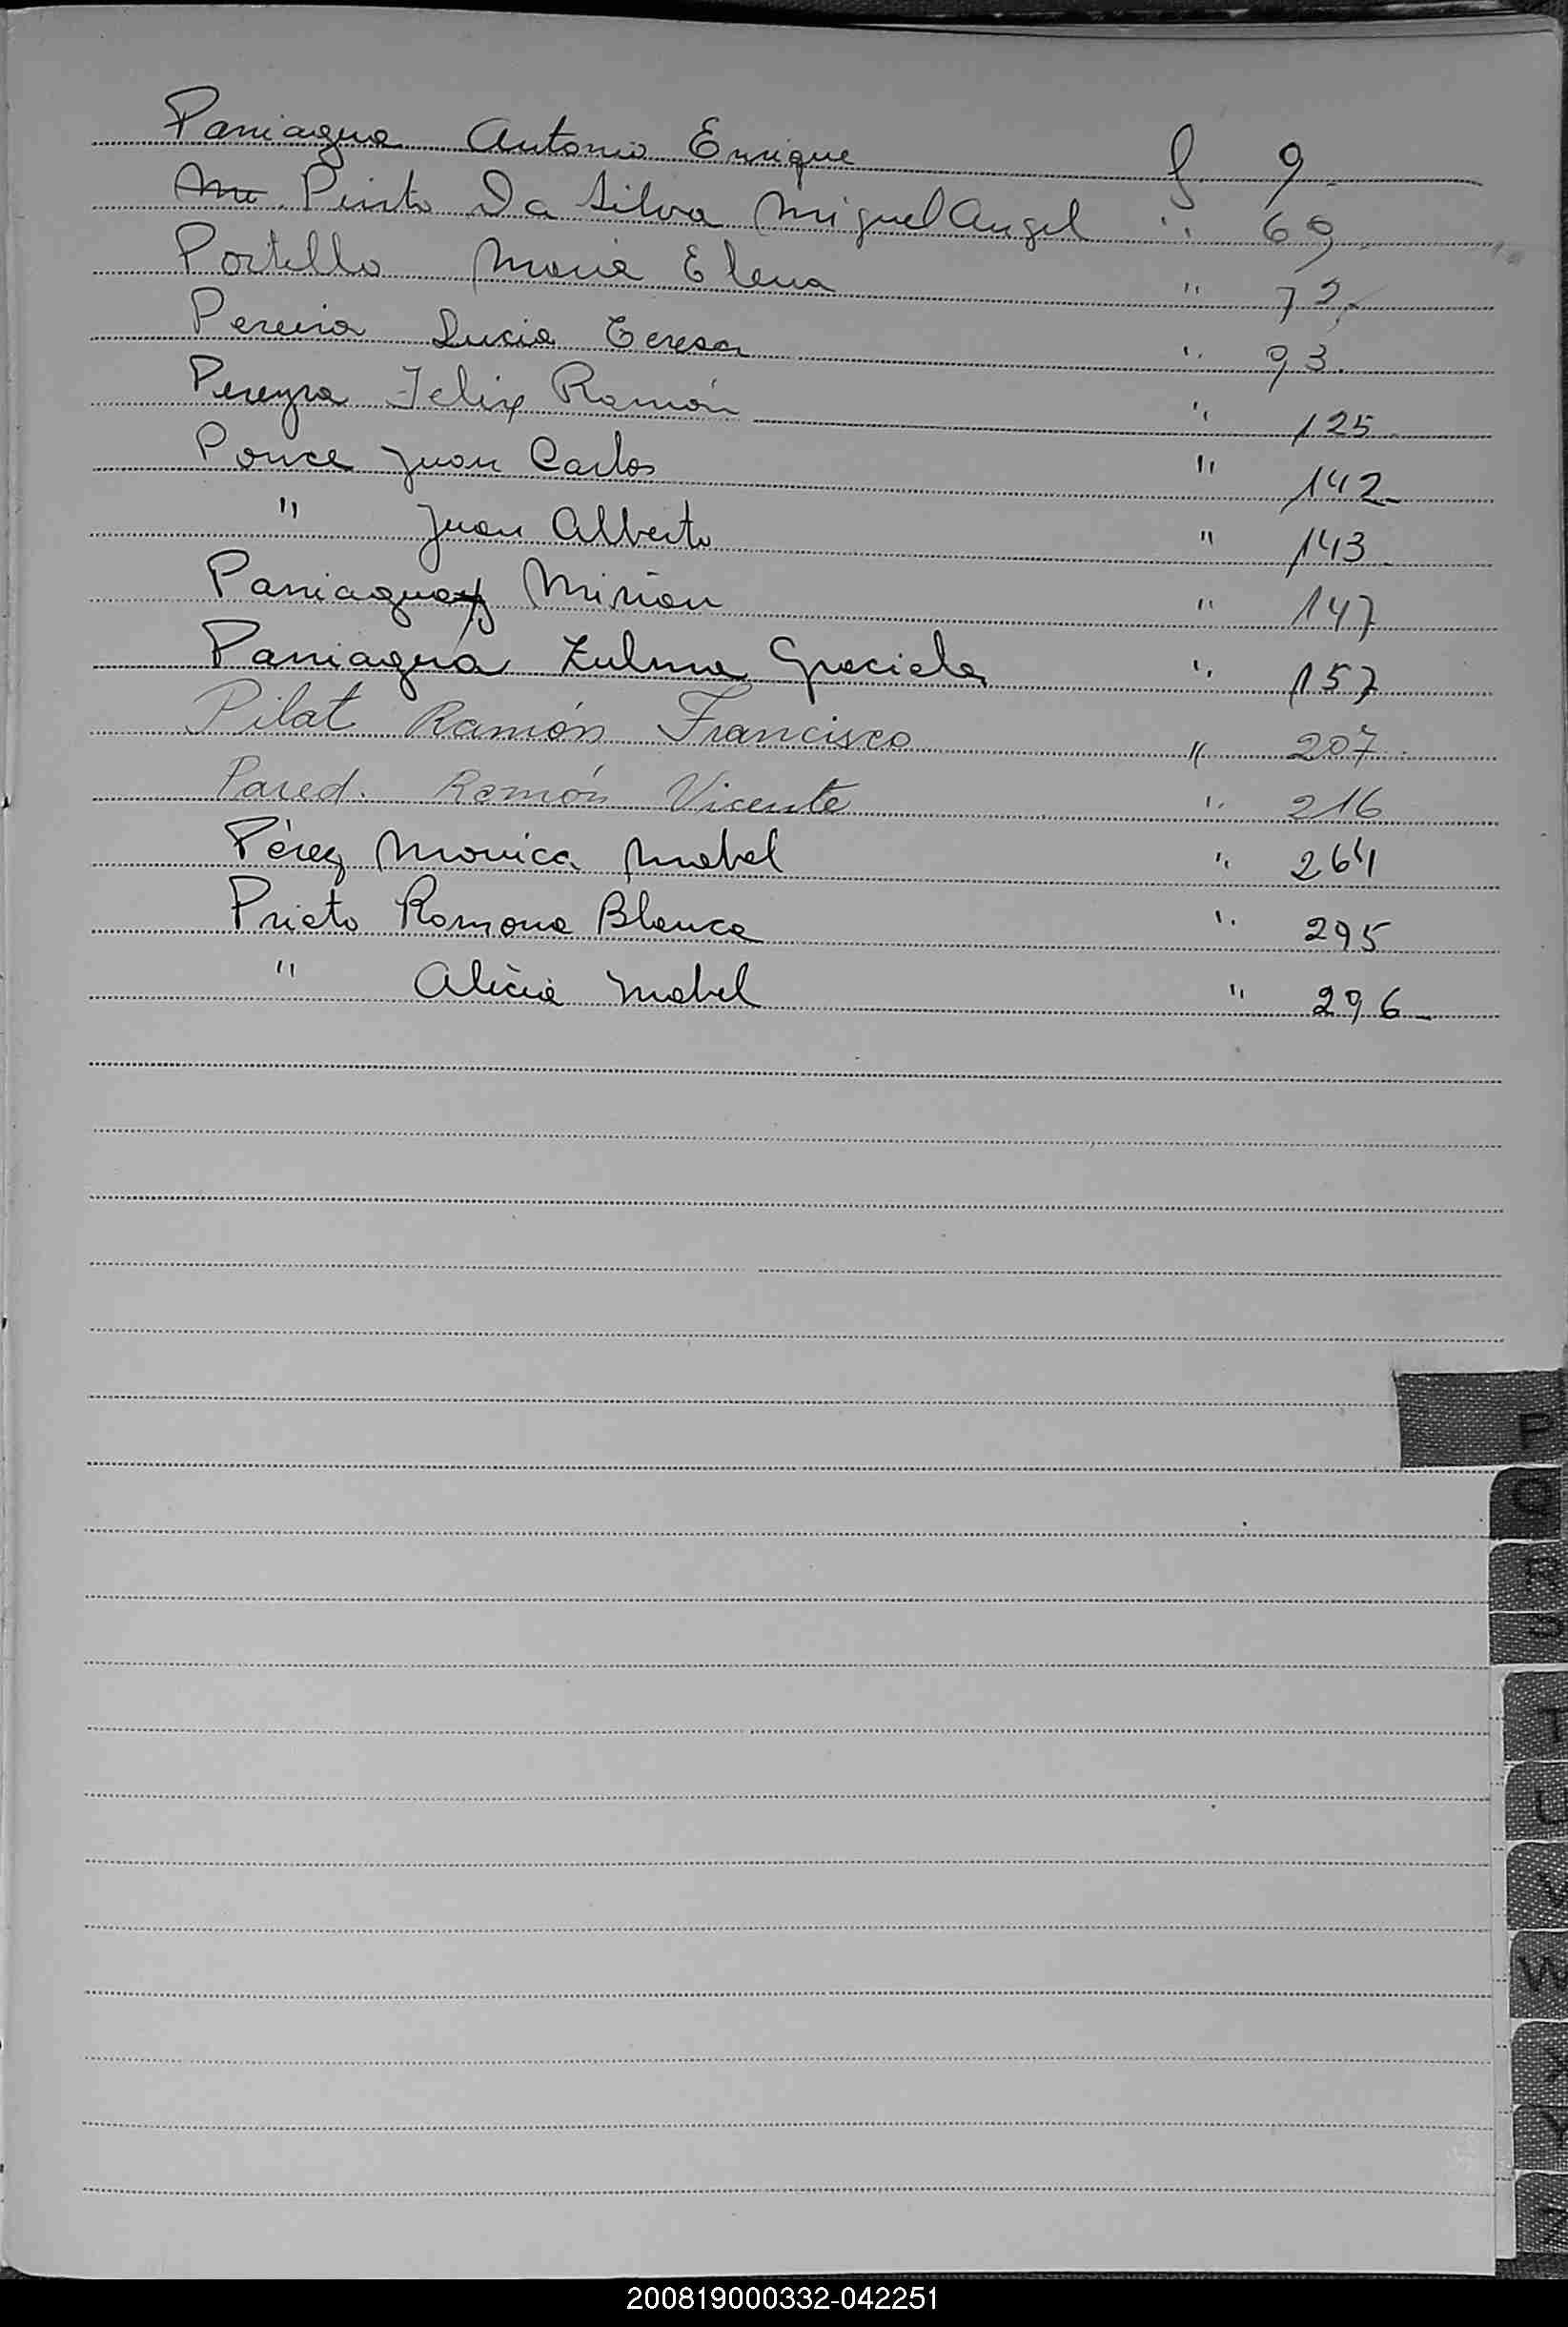 Paniagua Antonio Enrique f 9
Mu. Pinto Da Silva Miguel Angel " 69
Portillo Maria Elena " 72
Pereira Lucia Teresa " 93.
Pereyra Felix Ramón " 125
Ponce Juan Carlos " 142
" Juan Alberto " 143
Paniagua Mirian " 147
Paniagua Zulma Graciela " 157
Pilat Ramón Francisco " 207
Pared. Ramón Vicente " 216
Pérez Monica Mabel " 264
Prieto Ramona Blanca " 295
" Alicia Mabel " 296
P
Q
R
S
T
U
V
W
X
Y
Z
200819000332-042251